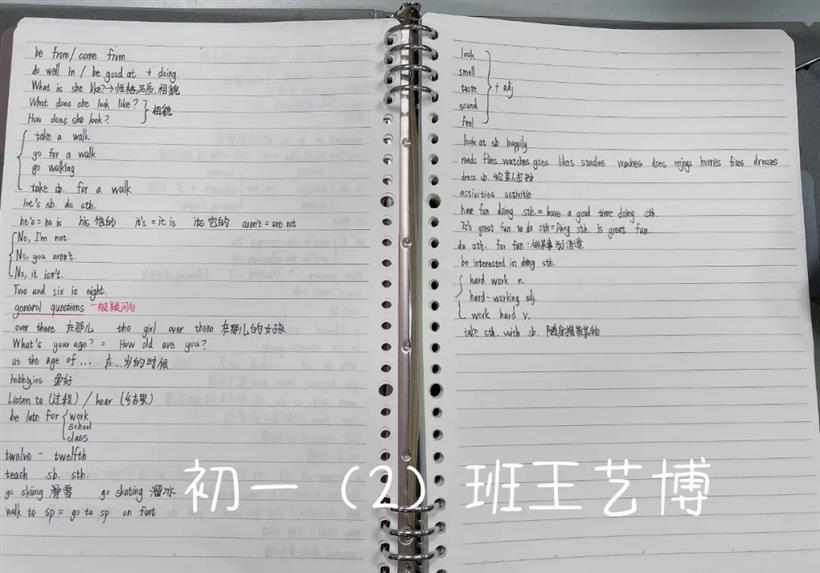 be from/come from
do well in / be good at + doing
What is she like?→性格,品质,相貌
What does she look like?
How does she look? } 相貌
take a walk
go for a walk
go walking
take sb. for a walk
let's sb. do sth.
he's = he is his 他的 it's = it is its 它的 aren't = are not
No, I'm not.
No, you aren't.
No, it isn't.
Two and six is eight.
general questions 一般疑问句
over there 在那儿 the girl over there 在那儿的女孩
What's your age? = How old are you?
at the age of ... 在...岁的时候
hobbies 爱好
Listen to (过程) / hear (结果)
be late for { work
school
class
twelve - twelfth
teach sb. sth.
go skiing 滑雪 go skating 溜冰
walk to sp = go to sp on foot
look
smell
taste + adj
sound
feel
look at sb. happily
reads flies watches goes likes studies washes does enjoys hurries fixes dresses
dress sb. 给某人打扮
activities
have fun doing sth. = have a good time doing sth.
It's great fun to do sth = Doing sth. is great fun
do sth. for fun : 做某事为了消遣
be interested in doing sth.
hard work n.
hard-working adj.
work hard v.
take sth. with sb. 随身携带某物
初一（2）班王艺博